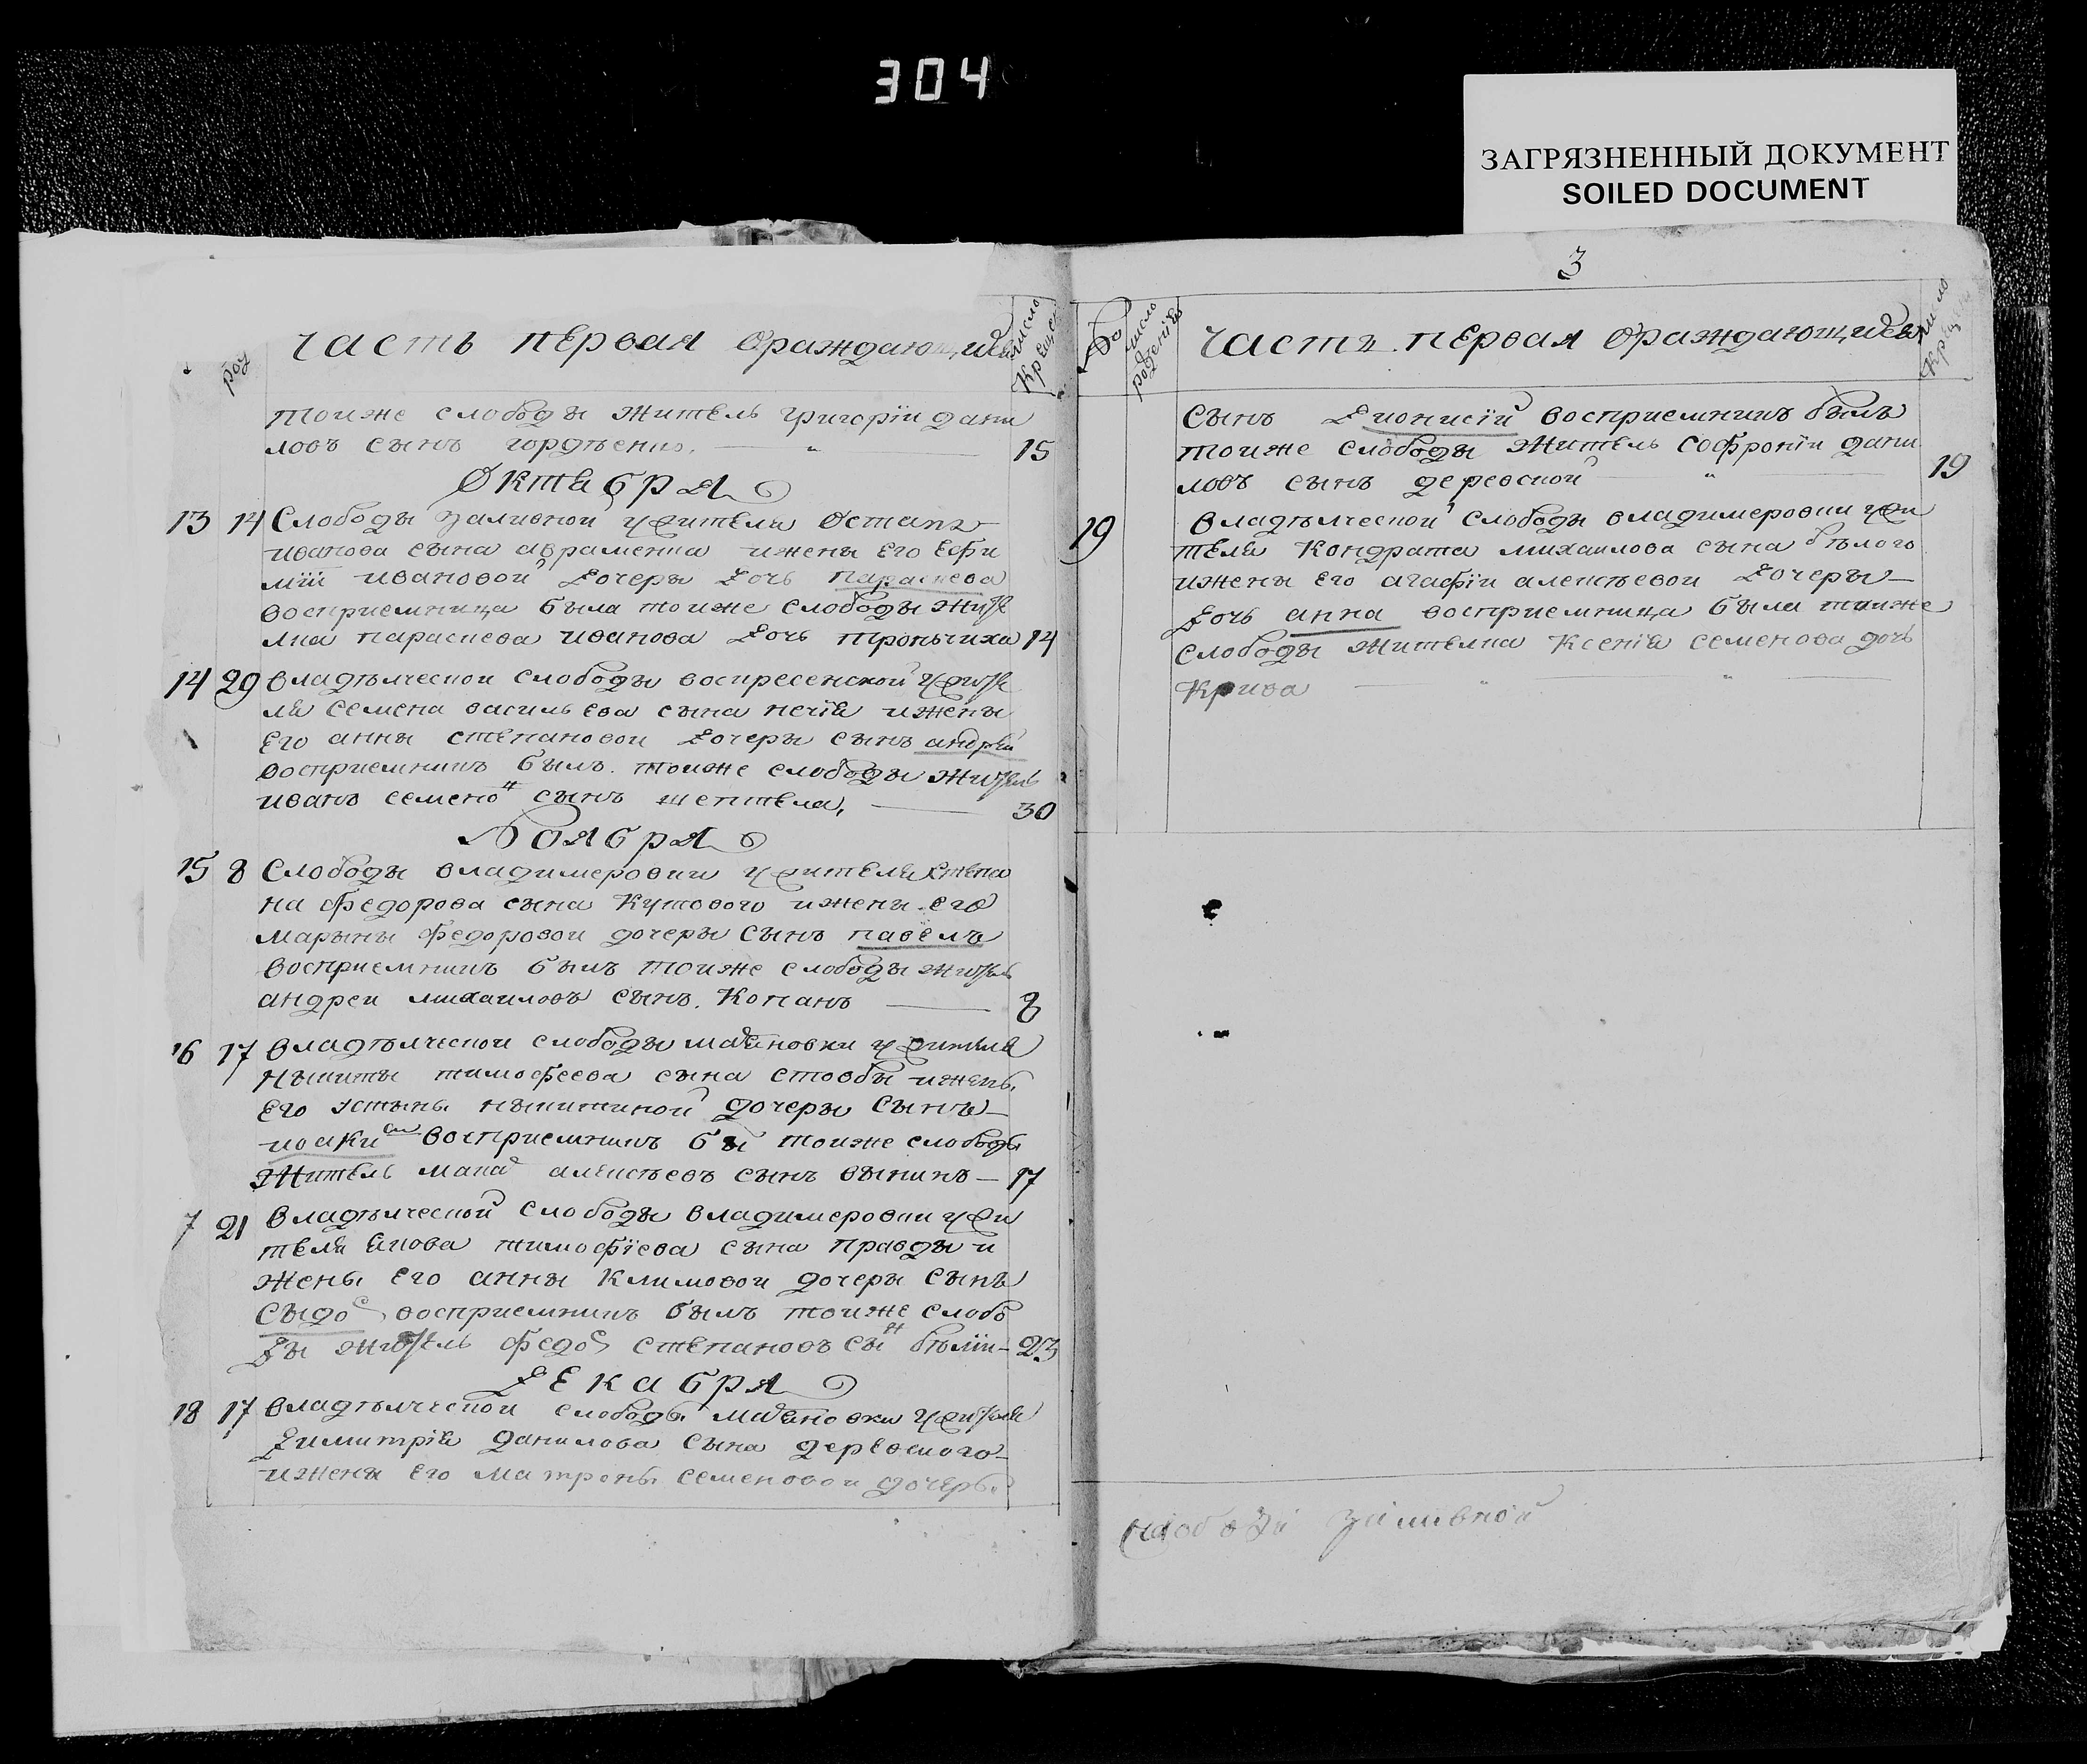 304
ЗАГРЯЗНЕННЫЙ ДОКУМЕНТ
SOILED DOCUMENT
роҗ
часть первая ораждающихся
число Крещен
тоиже слободы житель григорїи дани
ловъ сынъ гордѣенко. 15
Октября
13 14 Слободы заливной жителя Остапа
иванова сына авраменка ижены его Ефи
мїи ивановой дочеры дочь параскева
восприемница была тоиже слободы жите
лка параскева иванова дочь троньчиха 14
14 29 владѣлческои слободы воскресенской жите
ля семена васильева сына нечїя ижены
Его анны степановои дочеры сынъ андрей
восприемникъ былъ тоиже слободы житель
иванъ семено сынъ шептела, 30
Ноября
15 8 Слободы владимеровки жителя степа
на федорова сына Кутового ижены его
марыны федоровои дочеры сынъ павелъ
восприемникъ былъ тоиже слободы житель
андреи михаиловъ сынъ Копанъ 8
16 17 владѣлческои слободы маяновки жителя
Ныкиты тимофеева сына стовбы ижены
Его устыны ныкитиной дочеры сынъ
иоаким восприемникъ бы тоиже слободы
житель мака алексѣевъ сынъ 17
7 21 владѣлческой слободы владимеровки жи
теля якова тимофїева сына правды и
жены Его анны Климовои дочеры сынъ
сыдо восприемникъ былъ тоиже слобо
ды житель федо степановъ сын бѣлїи 23
Декабря
18 17 владѣлческои слободы маяновки жителя
димитрїя данилова сына деревского
ижены Его матроны семеновои дочеры
3
число рожденїя
часть первая ораждающихся
число Крещен
сынъ дионисїй восприемникъ былъ
тоиже слободы житель софронїи дани
ловъ сынъ деревской 19
19 владѣлческой слободы владимеровки жи
теля Кондрата михаилова сына бѣлого
ижены Его агафїи алексѣевои дочеры
дочь анна восприемница была тоиже
слободы жителка Ксенїя семенова дочь
Крива
слободи заливной